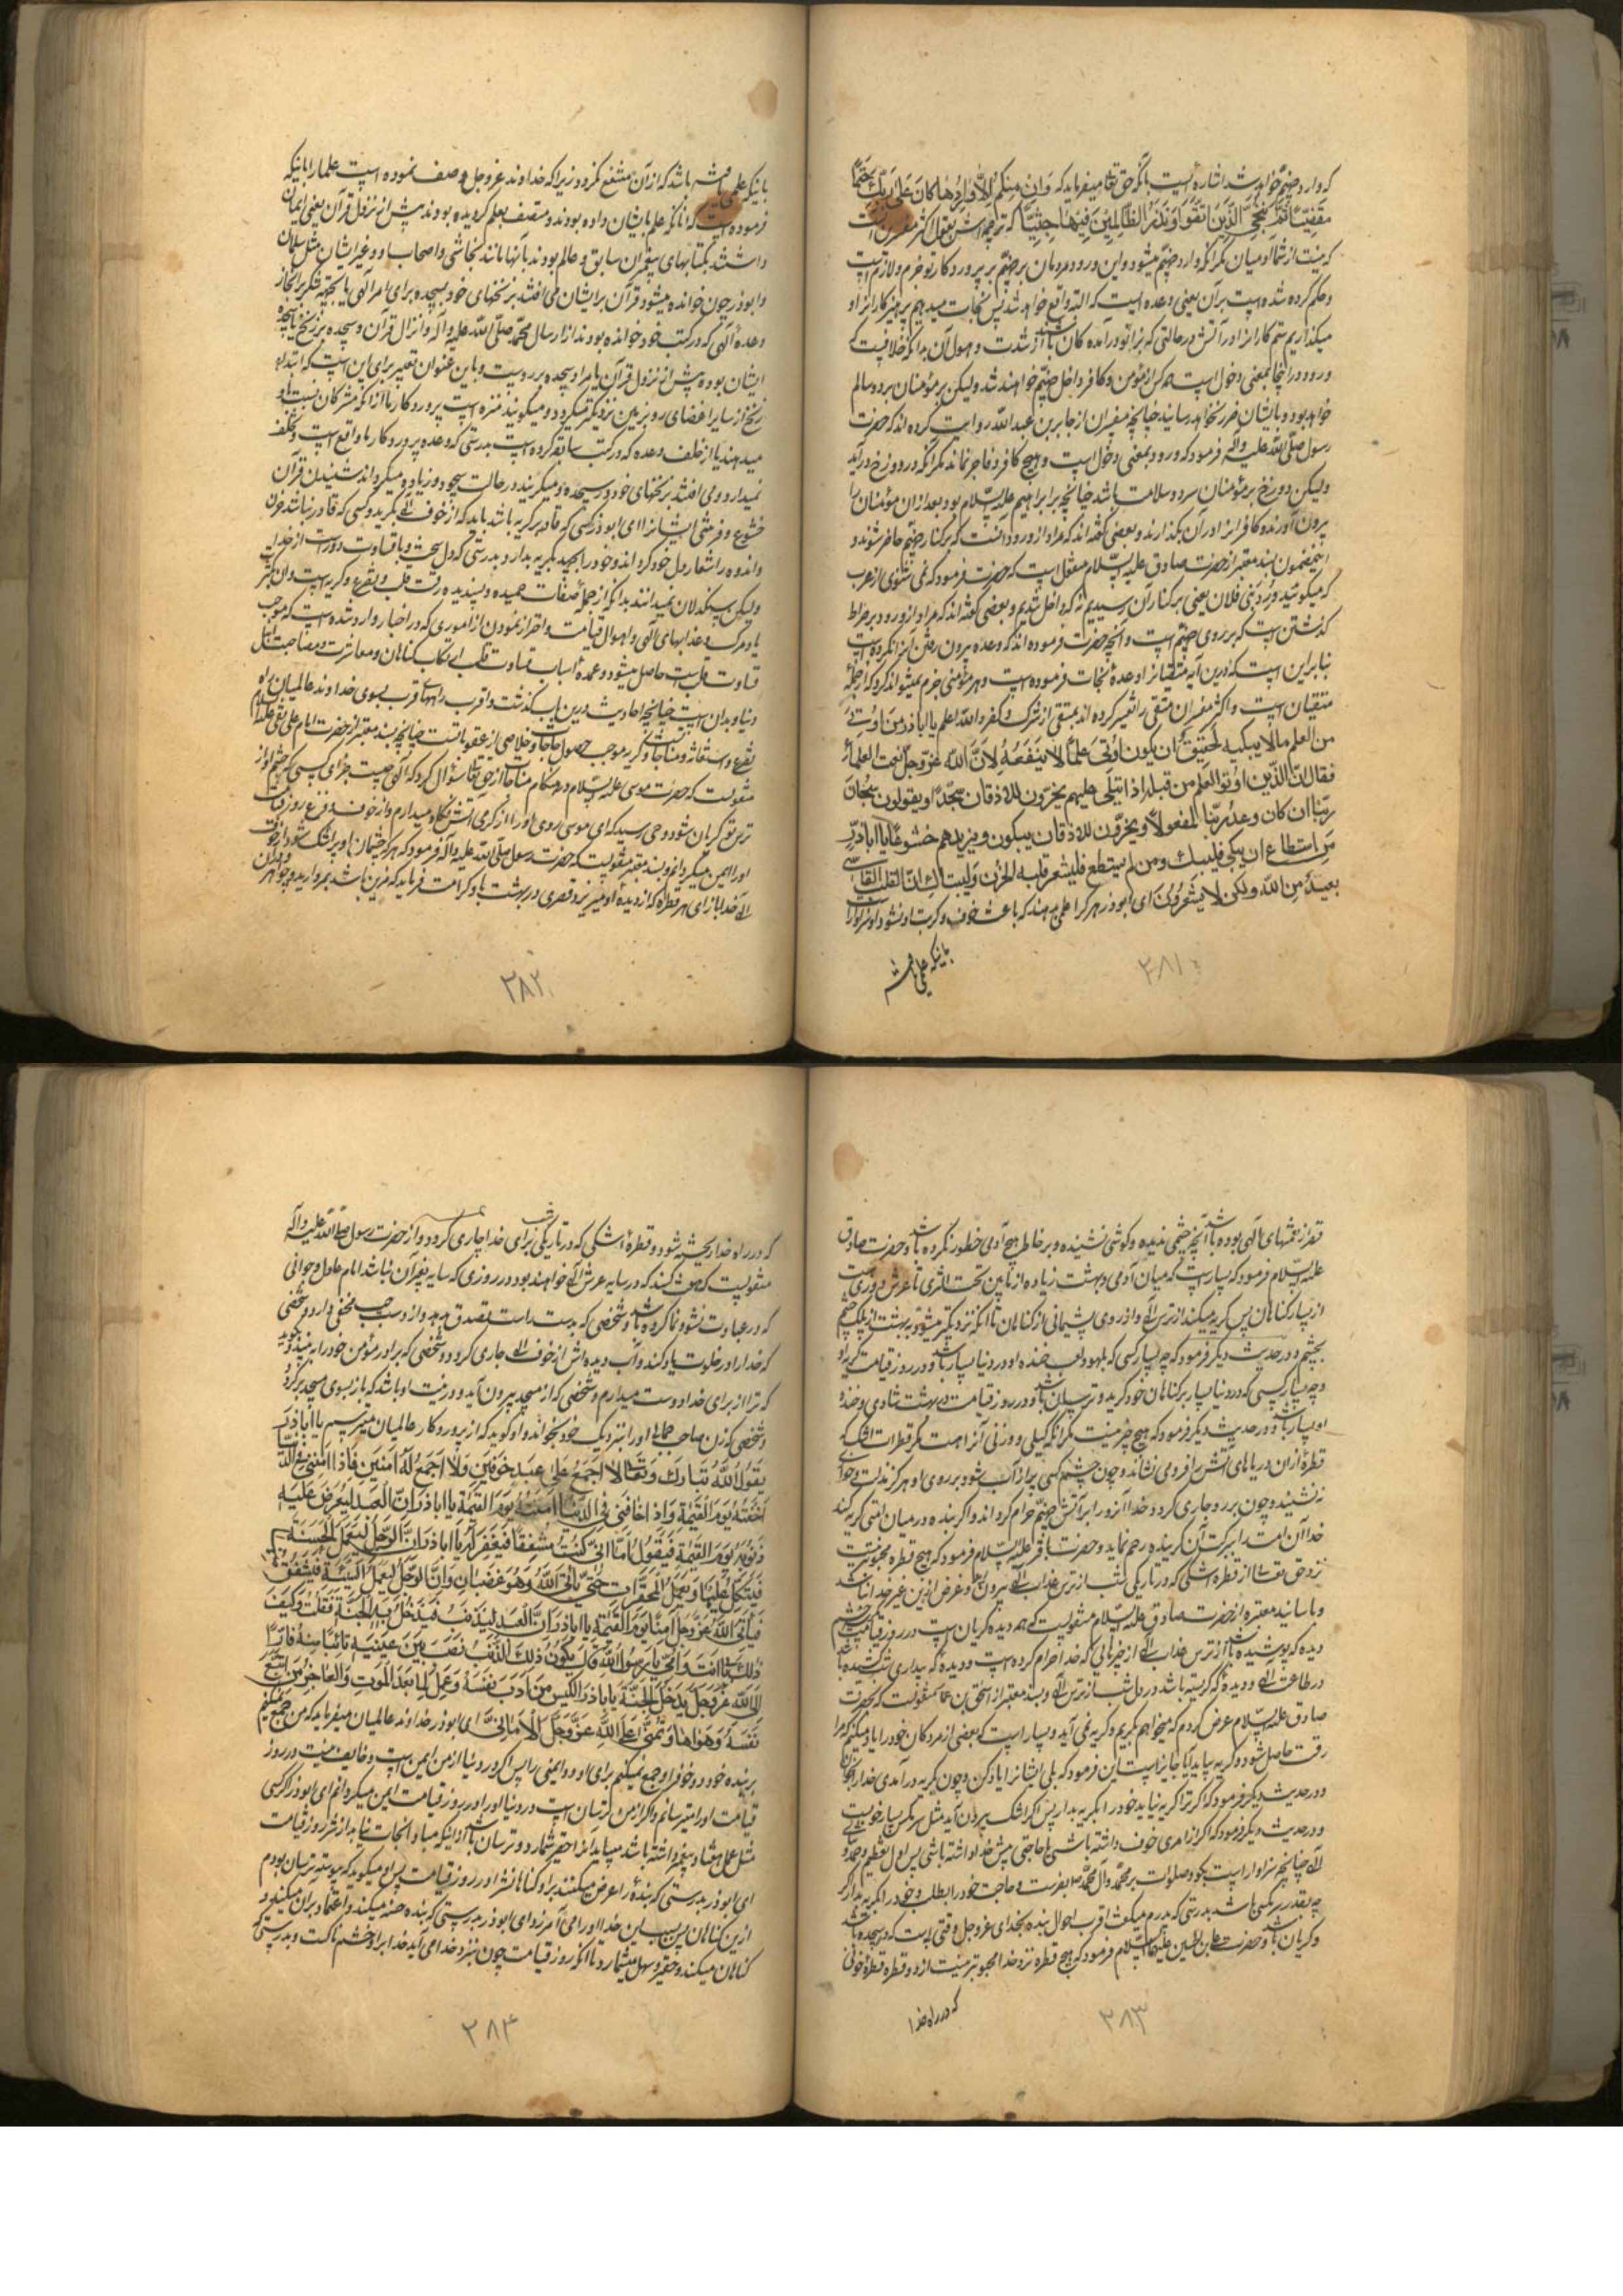 که وارد جهنم خواهد شد اشاره است بآنکه حق تعالی میفرماید که وَاِن مِنکُم اِلّا وارِدُها کانَ عَلی رَبِّکَ حَتمًا
مَقضِیًّا ثُمَّ نُنَجِّی الَّذینَ اتَّقَوا وَنَذَرُ الظّالِمینَ فیها جِثِیًّا که ترجمه‌اش بقول اکثر مفسران آنست
که نیست از شما آدمیان مگر آنکه وارد جهنم میشود و این ورود مردمان بر جهنم بر پروردگار تو جزم و لازمست
و حکم کرده شده است بر آن یعنی وعده است که البته واقع خواهد شد پس نجات میدهیم پرهیزکاران را و
میگذاریم ستم کاران را در آتش در حالتی که بزانو درآمده‌کان باشند از شدت و هول آن بدانکه خلافست که
ورود در اینجا بمعنی دخول است همه کس از مؤمن و کافر داخل جهنم خواهند شد ولیکن بر مؤمنان برد و سالم
خواهد بود و بایشان ضرر نخواهد رسانید چنانچه مفسران از جابر بن عبدالله روایت کرده‌اند که حضرت
رسول صلی الله علیه و آله فرمود که ورود بمعنی دخول است و هیچ کافر و فاجر نماند مگر آنکه در دوزخ درآید
ولیکن دوزخ بر مؤمنان سرد و سلامت باشد چنانچه بر ابراهیم علیه السّلام بود و بعد از آن مؤمنان را
بیرون آورند و کافران را در آن بگذارند و بعضی گفته‌اند که مراد از ورود آنست که بر کنار جهنم حاضر شوند و
اینمضمون بسند معتبر از حضرت صادق علیه السّلام منقول است که حضرت فرمود که نمی شنوی از عرب
که میگویند وَرَدَ بَنی فلان یعنی بر کنار آن رسیدیم نه که داخل شدیم و بعضی گفته‌اند که مراد از ورود بر صراط
گذشتن است که بر روی جهنم است و آنچه حضرت فرموده‌اند که وعده بیرون رفتن او را نکرده است
بنا بر این است که در این آیه متقیان را وعدهٔ نجات فرموده است و هر مؤمنی جزم نمیتواند کرد که از جملهٔ
متقیان است و اکثر مفسران متقی را تفسیر کرده‌اند بمتقی از شرک و کفر والله یعلم یا اباذر مَن اوتِیَ
من العلم مالا یبکیه لحقیق ان یکون اوتی علمًا لا ینفعه لِاَنَّ الله عزّوجلّ نعت العلماء
فقال انّ الّذین اوتوا العلم من قبله اذا یتلی علیهم یخرّون للاذقان سجّدًا و یقولون سبحان
ربّنا ان کان وعد ربّنا لمفعولًا و یخرّون للاذقان یبکون و یزیدهم خشوعًا یا اباذرّ
مَن استطاع ان یبکی فلیبک و من لم یستطع فلیشعر قلبه الحزن و لیتباک انّ القلب القاسی
بعیدٌ من الله ولکن لا یشعرون ای ابوذر هر کرا علمی بدهند که باعث خوف و گریه او نشود او سزاوار
باینکه علمی باشد
۳۸۱
باینکه علمی باشد که از آن منتفع نگردد زیرا که خداوند عزوجل وصف نموده است علما را باینکه
فرموده است که آنانکه علم بایشان داده بودند و متصف بعلم گردیده بودند پیش از نزول قرآن یعنی ایمان
داشتند بکتابهای پیغمبران سابق و عالم بودند بآنها مانند نجاشی و اصحاب او و غیر ایشان مثل سلمان
و ابوذر چون خوانده میشود قرآن بر ایشان می افتند بر زنخهای خود بسجده برای امر آلهی یا بجهة شکر بر انجاز
وعدهٔ آلهی که در کتب خود خوانده بودند از ارسال محمّد صلّی الله علیه و آله و انزال قرآن و سجده بر زنخ یا سجده
ایشان بوده پیش از نزول قرآن یا مراد سجده بر روست و باین عنوان تعبیر برای این است که ابتداء
زنخ از سایر اعضای رو بزمین نزدیکتر میگردد و میگویند منزه است پروردگار ما از آنکه مشرکان نسبت باو
میدهند یا از خلف وعده که در کتب سابقه کرده است بدرستی که وعده پروردگار ما واقع است و تخلف
نمیدارد و می افتند بر زنخهای خود در سجده و میگریند در حالت سجود و زیاده میگرداند شنیدن قرآن
خشوع و فروتنی ایشانرا ای ابوذر کسی که قادر بر گریه باشد باید که از خوف الهی بگرید و کسی که قادر نباشد حزن
و اندوه را شعار دل خود گرداند و خود را بجهد بگریه بدارد بدرستی که دل سخت و با قساوت دور است از خدا
ولیکن سنگدلان نمیدانند بدانکه از جملهٔ صفات حمیده و پسندیده رقت قلب و تضرع و گریه است و آن بتذکر
یاد مرگ و عذابهای الهی و اهوال قیامت و احتراز نمودن از اموری که در اخبار وارد شده است که موجب
قساوت قلب است حاصل میشود و عمدهٔ اسباب قساوت قلب ارتکاب گناهان و معاشرت و مصاحبت اهل
دنیا و بدان است چنانچه احادیث درین باب گذشت و اقرب راهها قرب بسوی خداوند عالمیان راه
تضرع و استغاثه و مناجات و گریه موجب حصول حاجات و خلاصی از عقوباتست چنانچه بسند معتبر از حضرت امام علی نقی علیه السلام
منقولست که حضرت موسی علیه السّلام در هنگام مناجات از حق تعالی سؤال کرد که الهی چیست جزای کسی که چشم او از
ترس تو گریان شود وحی رسید که ای موسی روی او را از گرمی آتش نگاه میدارم و از خوف و فزع روز قیامت
او را ایمن میگردانم و بسند معتبر منقولست که حضرت رسول صلی الله علیه و آله فرمود که هر که چشمان او پر از اشک شود از خوف
الهی خدا بازای هر قطرهٔ که از دیدهٔ او میریزد قصری در بهشت باو کرامت فرماید که مزین باشد بمروارید و جواهر
۳۸۲
قصر از نعمتهای الهی بوده باشد آنچه چشمی ندیده و گوشی نشنیده و بر خاطر هیچ آدمی خطور نکرده باشد و حضرت صادق
علیه السّلام فرمود که بسیار است که میان آدمی و بهشت زیاده از مابین تحت الثری تا عرش دوری هست
از بسیاری گناهان پس گریه میکند از ترس الهی و از روی پشیمانی از گناهان تا آنکه نزدیکتر میشود به بهشت از پلک چشم
بچشم و در حدیث دیگر فرمود که چه بسیار کسی که بلهو و لعب خنده او در دنیا بسیار باشد و در روز قیامت گریه او
و چه بسیار کسی که در دنیا بسیار بر گناهان خود گرید و ترسان باشد و در روز قیامت در بهشت شادی و خنده
او بسیار باشد و در حدیث دیگر فرمود که هیچ چیز نیست مگر آنکه کیلی و وزنی آنرا هست مگر قطرات اشک که
قطرهٔ از آن دریاهای آتش را فرو می نشاند و چون چشم کسی پر از آب شود بر روی او هرگز مذلت و خواری
ننشیند و چون بر رو جاری گردد خدا آنرو را بر آتش جهنم حرام گرداند و اگر بنده در میان امتی گریه کند
خدا آن امت را ببرکت آن گرینده رحم نماید و حضرت باقر علیه السّلام فرمود که هیچ قطره محبوبتر نیست
نزد حق تعالی از قطره اشکی که در تاریکی شب از ترس عذاب الهی بیرون آید و غرض از این غیر خدا نباشد
و باسانید معتبره از حضرت صادق علیه السّلام منقولست که همه دیده گریان است در روز قیامت مگر سه چشم
دیده که پوشیده باشد از ترس عذاب الهی از چیزهائی که خدا حرام کرده است و دیده که بیداری شب کشیده باشد
در طاعت الهی و دیدهٔ که گریسته باشد در دل شب از ترس الهی و بسند معتبر از اسحق بن عمار منقولست که بحضرت
صادق علیه السّلام عرض کردم که میخواهم بگریم و گریه نمی آید و بسیار است که بعضی از مردگان خود را یاد میکنم که مرا
رقت حاصل شود و گریه بیاید آیا جایز است این فرمود که بلی ایشان را یاد کن و چون بگریه درآمدی خدا را بخوان
و در حدیث دیگر فرمود که اگر ترا گریه نیاید خود را بگریه بدار پس اگر اشک بیرون آید مثل سر مگس بسیار خوبست
و در حدیث دیگر فرمود که اگر از امری خوف داشته باشی یا حاجتی پیش خدا داشته باشی پس اول تعظیم و حمد و ثنای
الهی چنانچه سزاوار است بکن و صلوات بر محمّد و آل محمّد بفرست و حاجت خود را بطلب و خود را بگریه بدار اگر
چه بقدر سر مگسی باشد بدرستی که پدرم میگفت اقرب احوال بنده بخدای عزوجل وقتی است که در سجده باشد
و گریان باشد و حضرت علی بن الحسین علیهما السّلام فرمود که هیچ قطره نزد خدا محبوبتر نیست از دو قطره قطرهٔ خونی
که در راه خدا
۳۸۳
که در راه خدا ریخته شود و قطرهٔ اشکی که در تاریکی شب برای خدا جاری گردد و از حضرت رسول صلی الله علیه و آله
منقولست که هفت کسند که در سایه عرش الهی خواهند بود در روزی که سایه بغیر آن نباشد امام عادل و جوانی
که در عبادت نشو و نما کرده باشد و شخصی که بدست راست تصدق بدهد و از دست چپ مخفی دارد و شخصی
که خدا را در خلوت یاد کند و آب دیده‌اش از خوف الهی جاری گردد و شخصی که برادر مؤمن خود را به بیند و بگوید
که ترا از برای خدا دوست میدارم و شخصی که از مسجد بیرون آید و در نیت او باشد که باز بسوی مسجد برگردد
و شخصی که زن صاحب جمالی او را بنزدیک خود بخواند و او گوید که از پروردگار عالمیان میترسم یا اباذرّ
یَقُولُ اللهُ تَبارَکَ وَتَعالی لا اَجمَعُ عَلی عَبدٍ خَوفَینِ وَلا اَجمَعُ لَهُ اَمنَینِ فَاِذا اَمِنَنی فِی الدُّنیا
اَخَفتُهُ یَومَ القِیمَةِ وَاِذا خافَنی فِی الدُّنیا امَنتُهُ یَومَ القِیمَةِ یا اباذرّ اِنَّ العَبدَ لَیُعرَضُ عَلَیهِ
ذُنُوبُهُ یَومَ القِیمَةِ فَیَقُولُ اَما اِنّی کُنتُ مُشفِقًا فَیُغفَرُ لَهُ یا اباذر اِنَّ الرَّجُلَ لَیَعمَلُ الحَسَنَةَ
فَیَتَّکِلُ عَلَیها وَیَعمَلُ المُحَقَّراتِ حَتّی یَأتِیَ اللهَ وَهُوَ عَلَیهِ غَضبانُ وَاِنَّ الرَّجُلَ لَیَعمَلُ السَّیِّئَةَ فَیَفرَقُ
فَیَأتِی اللهَ عَزَّوَجَلَّ امِنًا یَومَ القِیمَةِ یا اباذر اِنَّ العَبدَ لَیُذنِبُ فَیَدخُلُ بِهِ الجَنَّةَ فَقُلتُ وَکَیفَ
ذلِکَ بِاَبی اَنتَ وَاُمّی یا رَسُولَ اللهِ قالَ یَکُونُ ذلِکَ الذَّنبُ نَصبَ عَینَیهِ تائِبًا مِنهُ فارًّا
اِلَی اللهِ عَزَّوَجَلَّ حَتّی یَدخُلَ الجَنَّةَ یا اباذر الکَیِّسُ مَن اَدَّبَ نَفسَهُ وَعَمِلَ لِما بَعدَ المَوتِ وَالعاجِزُ مَنِ اتَّبَعَ
نَفسَهُ وَهَواها وَتَمَنّی عَلَی اللهِ عَزَّوَجَلَّ الاَمانِیَّ ای ابوذر خداوند عالمیان میفرماید که من جمع نمیکنم
بر بنده خود دو خوف را و جمع نمیکنم برای او دو ایمنی را پس اگر در دنیا از من ایمن است و خایف نیست در روز
قیامت او را میترسانم و اگر از من ترسان است در دنیا او را در روز قیامت ایمن میگردانم ای ابوذر اگر کسی
مثل عمل هفتاد پیغمبر داشته باشد میباید آنرا حقیر شمارد و ترسان باشد از اینکه مبادا نجات نیابد از شر روز قیامت
ای ابوذر بدرستی که بندهٔ را عرض میکنند بر او گناهانش را در روز قیامت پس او میگوید که پیوسته ترسان بودم
از این گناهان پس بسبب این خدا او را می آمرزد ای ابوذر بدرستی که بنده حسنه میکند و اعتماد بر آن میکند و
گناهان میکند و حقیر و سهل میشمارد تا آنکه روز قیامت چون بنزد خدا می آید خدا بر او خشم ناکست و بدرستی که
۳۸۴